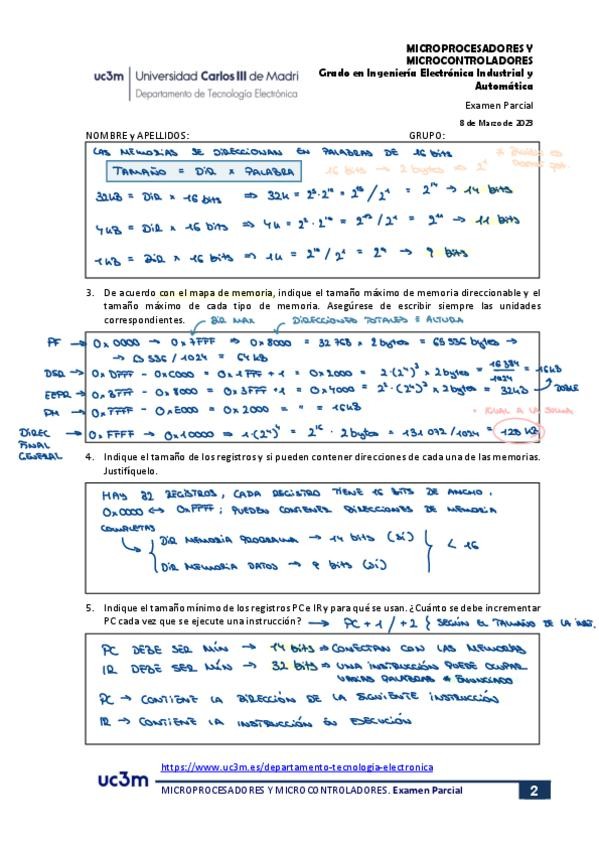 MICROPROCESADORES Y
MICROCONTROLADORES
Grado en Ingeniería Electrónica Industrial y
Automática
uc3m | Universidad Carlos III de Madrid
Departamento de Tecnología Electrónica
Examen Parcial
8 de Marzo de 2023
NOMBRE y APELLIDOS: GRUPO:
LAS MEMORIAS SE DIRECCIONAN EN PALABRAS DE 16 bits
TAMAÑO = DIR x PALABRA
16 bits → 2 bytes → 2¹
32kB = DIR x 16 bits ⇒ 32k = 2⁵·2¹⁰ = 2¹⁵/2¹ = 2¹⁴ → 14 bits
4kB = DIR x 16 bits ⇒ 4k = 2²·2¹⁰ = 2¹²/2¹ = 2¹¹ → 11 bits
1kB = DIR x 16 bits ⇒ 1k = 2¹⁰/2¹ = 2⁹ → 9 bits
3. De acuerdo con el mapa de memoria, indique el tamaño máximo de memoria direccionable y el
tamaño máximo de cada tipo de memoria. Asegúrese de escribir siempre las unidades
correspondientes. DIR MAX DIRECCIONES TOTALES = ALTURA
PF → 0x0000 → 0x7FFF → 0x8000 = 32768 x 2 bytes = 65536 bytes →
→ 65536/1024 = 64 kB
0xDFFF - 0xC000 = 0x1FFF + 1 = 0x2000 = 2·(2⁴)³ x 2 bytes = 16384/1024 = 16kB
0xBFFF - 0x8000 = 0x3FFF + 1 = 0x4000 = 2²·(2⁴)³ x 2 bytes = 32kB → DOBLE
0xFFFF - 0xE000 = 0x2000 = " = 16kB
• IGUAL A LA SUMA
DIREC FINAL GENERAL → 0xFFFF → 0x10000 → 1·(2⁴)⁴ = 2¹⁶ · 2 bytes = 131072/1024 = 128 kB
4. Indique el tamaño de los registros y si pueden contener direcciones de cada una de las memorias.
Justifíquelo.
HAY 32 REGISTROS, CADA REGISTRO TIENE 16 BITS DE ANCHO.
0x0000 ↔ 0xFFFF; PUEDEN CONTENER DIRECCIONES DE MEMORIA
COMPLETAS
DIR MEMORIA PROGRAMA → 14 bits (sí)
< 16
DIR MEMORIA DATOS → 9 bits (sí)
5. Indique el tamaño mínimo de los registros PC e IR y para qué se usan. ¿Cuánto se debe incrementar
PC cada vez que se ejecute una instrucción? → PC + 1 / + 2 { SEGÚN EL TAMAÑO DE LA INST.
PC DEBE SER MÍN → 14 bits ⇒ CONECTAN CON LAS MEMORIAS
IR DEBE SER MÍN → 32 bits ⇒ UNA INSTRUCCIÓN PUEDE OCUPAR
VARIAS PALABRAS * ENUNCIADO
PC → CONTIENE LA DIRECCIÓN DE LA SIGUIENTE INSTRUCCIÓN
IR → CONTIENE LA INSTRUCCIÓN EN EJECUCIÓN
https://www.uc3m.es/departamento-tecnologia-electronica
uc3m
MICROPROCESADORES Y MICROCONTROLADORES. Examen Parcial 2